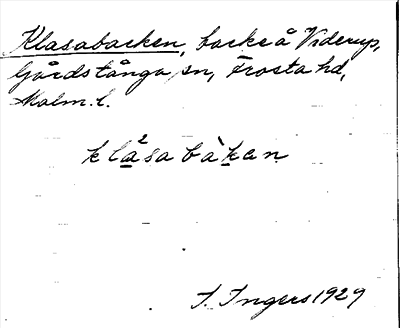 Klasabacken, backe å Viderup,
Gårdstånga sn, Frosta hd,
Malm. l.
kla²sa bàkan
I. Ingers 1929